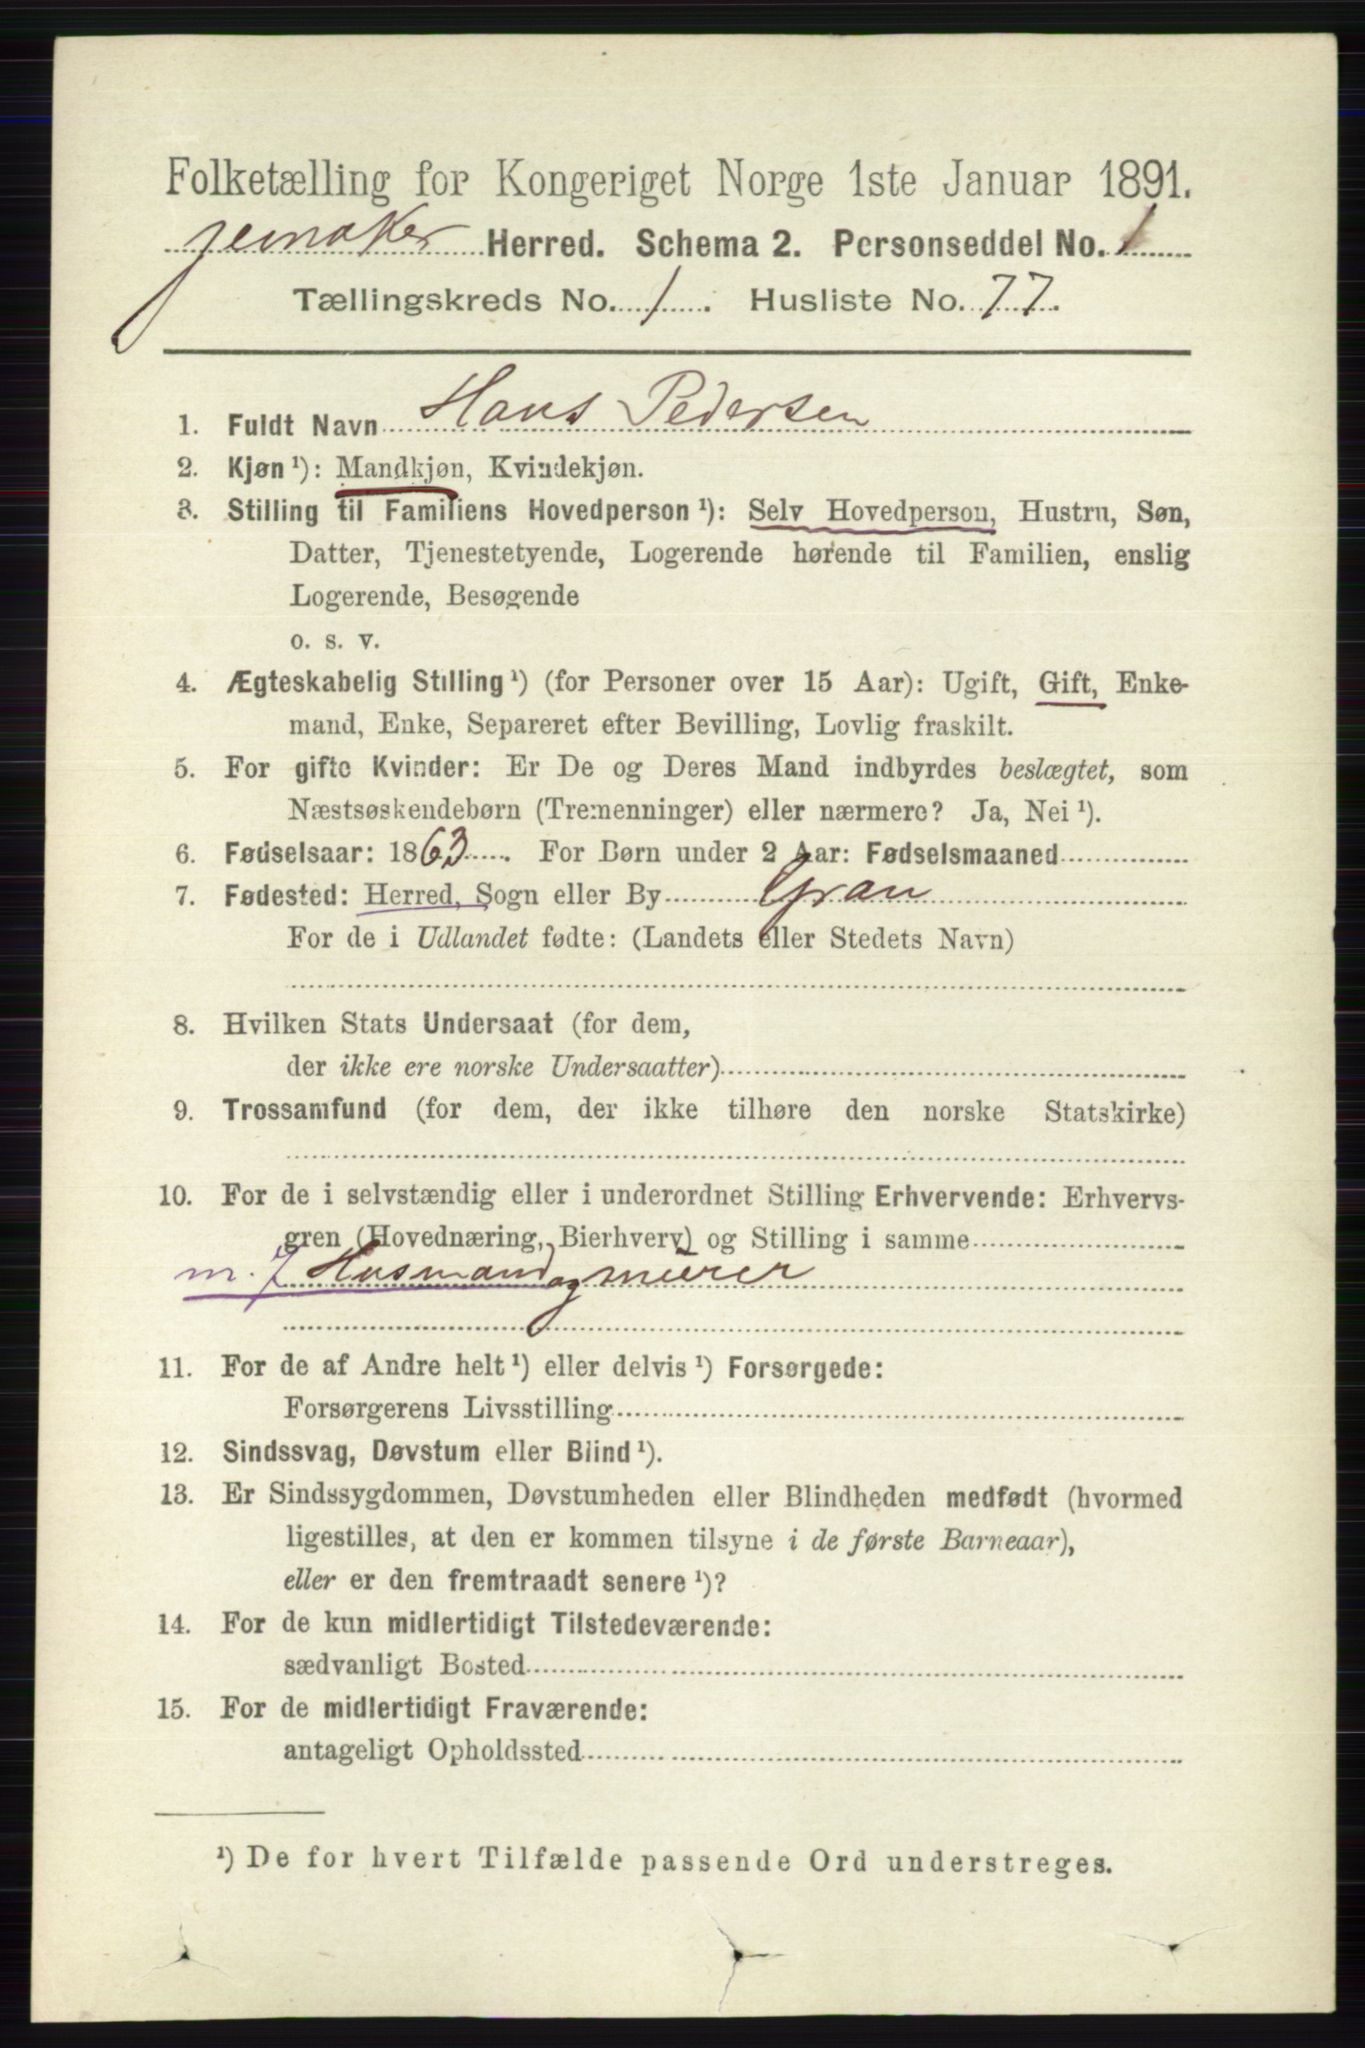 Folketælling for Kongeriget Norge 1ste Januar 1891.
Jevnaker Herred. Schema 2. Personseddel No. 1
Tællingskreds No. 1. Husliste No. 77.
1. Fuldt Navn Hans Pedersen
2. Kjøn ¹): Mandkjøn, Kvindekjøn.
3. Stilling til Familiens Hovedperson ¹): Selv Hovedperson, Hustru, Søn,
Datter, Tjenestetyende, Logerende hørende til Familien, enslig
Logerende, Besøgende
o. s. v.
4. Ægteskabelig Stilling ¹) (for Personer over 15 Aar): Ugift, Gift, Enke-
mand, Enke, Separeret efter Bevilling, Lovlig fraskilt.
5. For gifte Kvinder: Er De og Deres Mand indbyrdes beslægtet, som
Næstsøskendebørn (Tremenninger) eller nærmere? Ja, Nei ¹).
6. Fødselsaar: 1863. For Børn under 2 Aar: Fødselsmaaned
7. Fødested: Herred, Sogn eller By Gran
For de i Udlandet fødte: (Landets eller Stedets Navn)
8. Hvilken Stats Undersaat (for dem,
der ikke ere norske Undersaatter)
9. Trossamfund (for dem, der ikke tilhøre den norske Statskirke)
10. For de i selvstændig eller i underordnet Stilling Erhvervende: Erhvervs-
gren (Hovednæring, Bierhverv) og Stilling i samme
m. J Husmand og murer
11. For de af Andre helt ¹) eller delvis ¹) Forsørgede:
Forsørgerens Livsstilling
12. Sindssvag, Døvstum eller Blind ¹).
13. Er Sindssygdommen, Døvstumheden eller Blindheden medfødt (hvormed
ligestilles, at den er kommen tilsyne i de første Barneaar),
eller er den fremtraadt senere ¹)?
14. For de kun midlertidigt Tilstedeværende:
sædvanligt Bosted
15. For de midlertidigt Fraværende:
antageligt Opholdssted
¹) De for hvert Tilfælde passende Ord understreges.